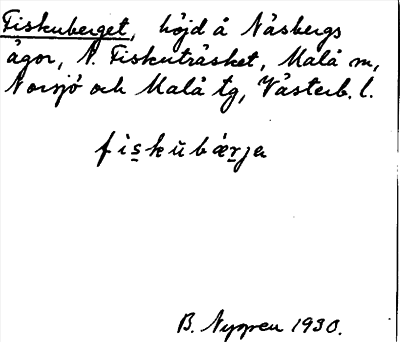 Fiskuberget, höjd å Näsbergs
ägor, N. Fiskuträsket, Malå m,
Norsjö och Malå tg, Västerb. l.
fìs̱kŭbæ̀ṟja
B. Nygren 1930.